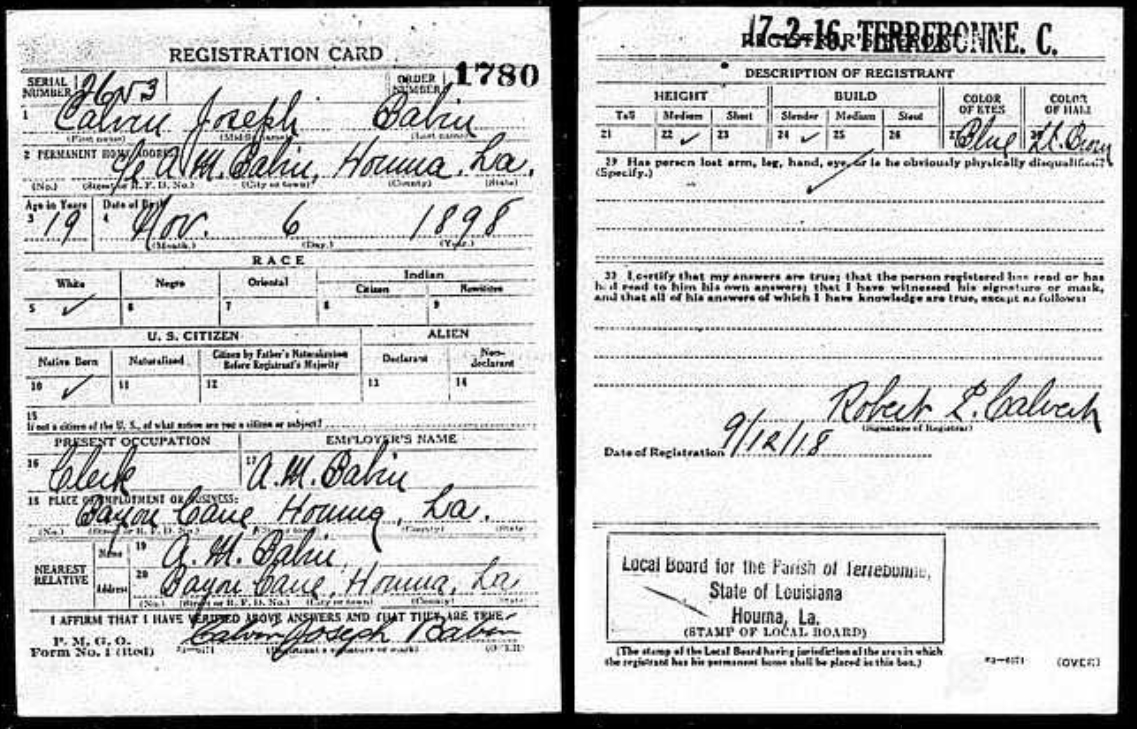 REGISTRATION CARD
SERIAL NUMBER
ORDER NUMBER 1780
1 Calvin Joseph Babin
(First name) (Middle name) (Last name)
2 PERMANENT HOME ADDRESS:
A. M. Babin, Houma, La.
(No.) (Street or R. F. D. No.) (City or town) (County) (State)
Age in Years Date of Birth
3 19 4 Nov. 6 1898
(Month.) (Day.) (Year.)
RACE
White Negro Oriental Indian
Citizen Noncitizen
5 ✓ 6 7 8 9
U. S. CITIZEN ALIEN
Native Born Naturalized Citizen by Father's Naturalization Before Registrant's Majority Declarant Non-declarant
10 ✓ 11 12 13 14
15
If not a citizen of the U. S., of what nation are you a citizen or subject?
PRESENT OCCUPATION EMPLOYER'S NAME
16 Clerk 17 A. M. Babin
18 PLACE OF EMPLOYMENT OR BUSINESS:
Bayou Cane, Houma, La.
(No.) (Street or R. F. D. No.) (City or town) (County) (State)
NEAREST RELATIVE
Name 19 A. M. Babin,
Address 20 Bayou Cane, Houma, La,
(No.) (Street or R. F. D. No.) (City or town) (County) (State)
I AFFIRM THAT I HAVE VERIFIED ABOVE ANSWERS AND THAT THEY ARE TRUE
P. M. G. O.
Form No. 1 (Red) Calvin Joseph Babin
(Registrant's signature or mark) (OVER)
17-2-16 TERREBONNE. C.
REGISTRAR'S REPORT
DESCRIPTION OF REGISTRANT
HEIGHT BUILD COLOR OF EYES COLOR OF HAIR
Tall Medium Short Slender Medium Stout
21 22 ✓ 23 24 ✓ 25 26 27 Blue 28 Lt. Brown
29 Has person lost arm, leg, hand, eye, or is he obviously physically disqualified?
(Specify.)
30 I certify that my answers are true; that the person registered has read or has
had read to him his own answers; that I have witnessed his signature or mark,
and that all of his answers of which I have knowledge are true, except as follows:
Robert
(Signature of Registrar)
Date of Registration 9/12/18
Local Board for the Parish of Terrebonne,
State of Louisiana
Houma, La.
(STAMP OF LOCAL BOARD)
(The stamp of the Local Board having jurisdiction of the area in which
the registrant has his permanent home shall be placed in this box.)
(OVER)